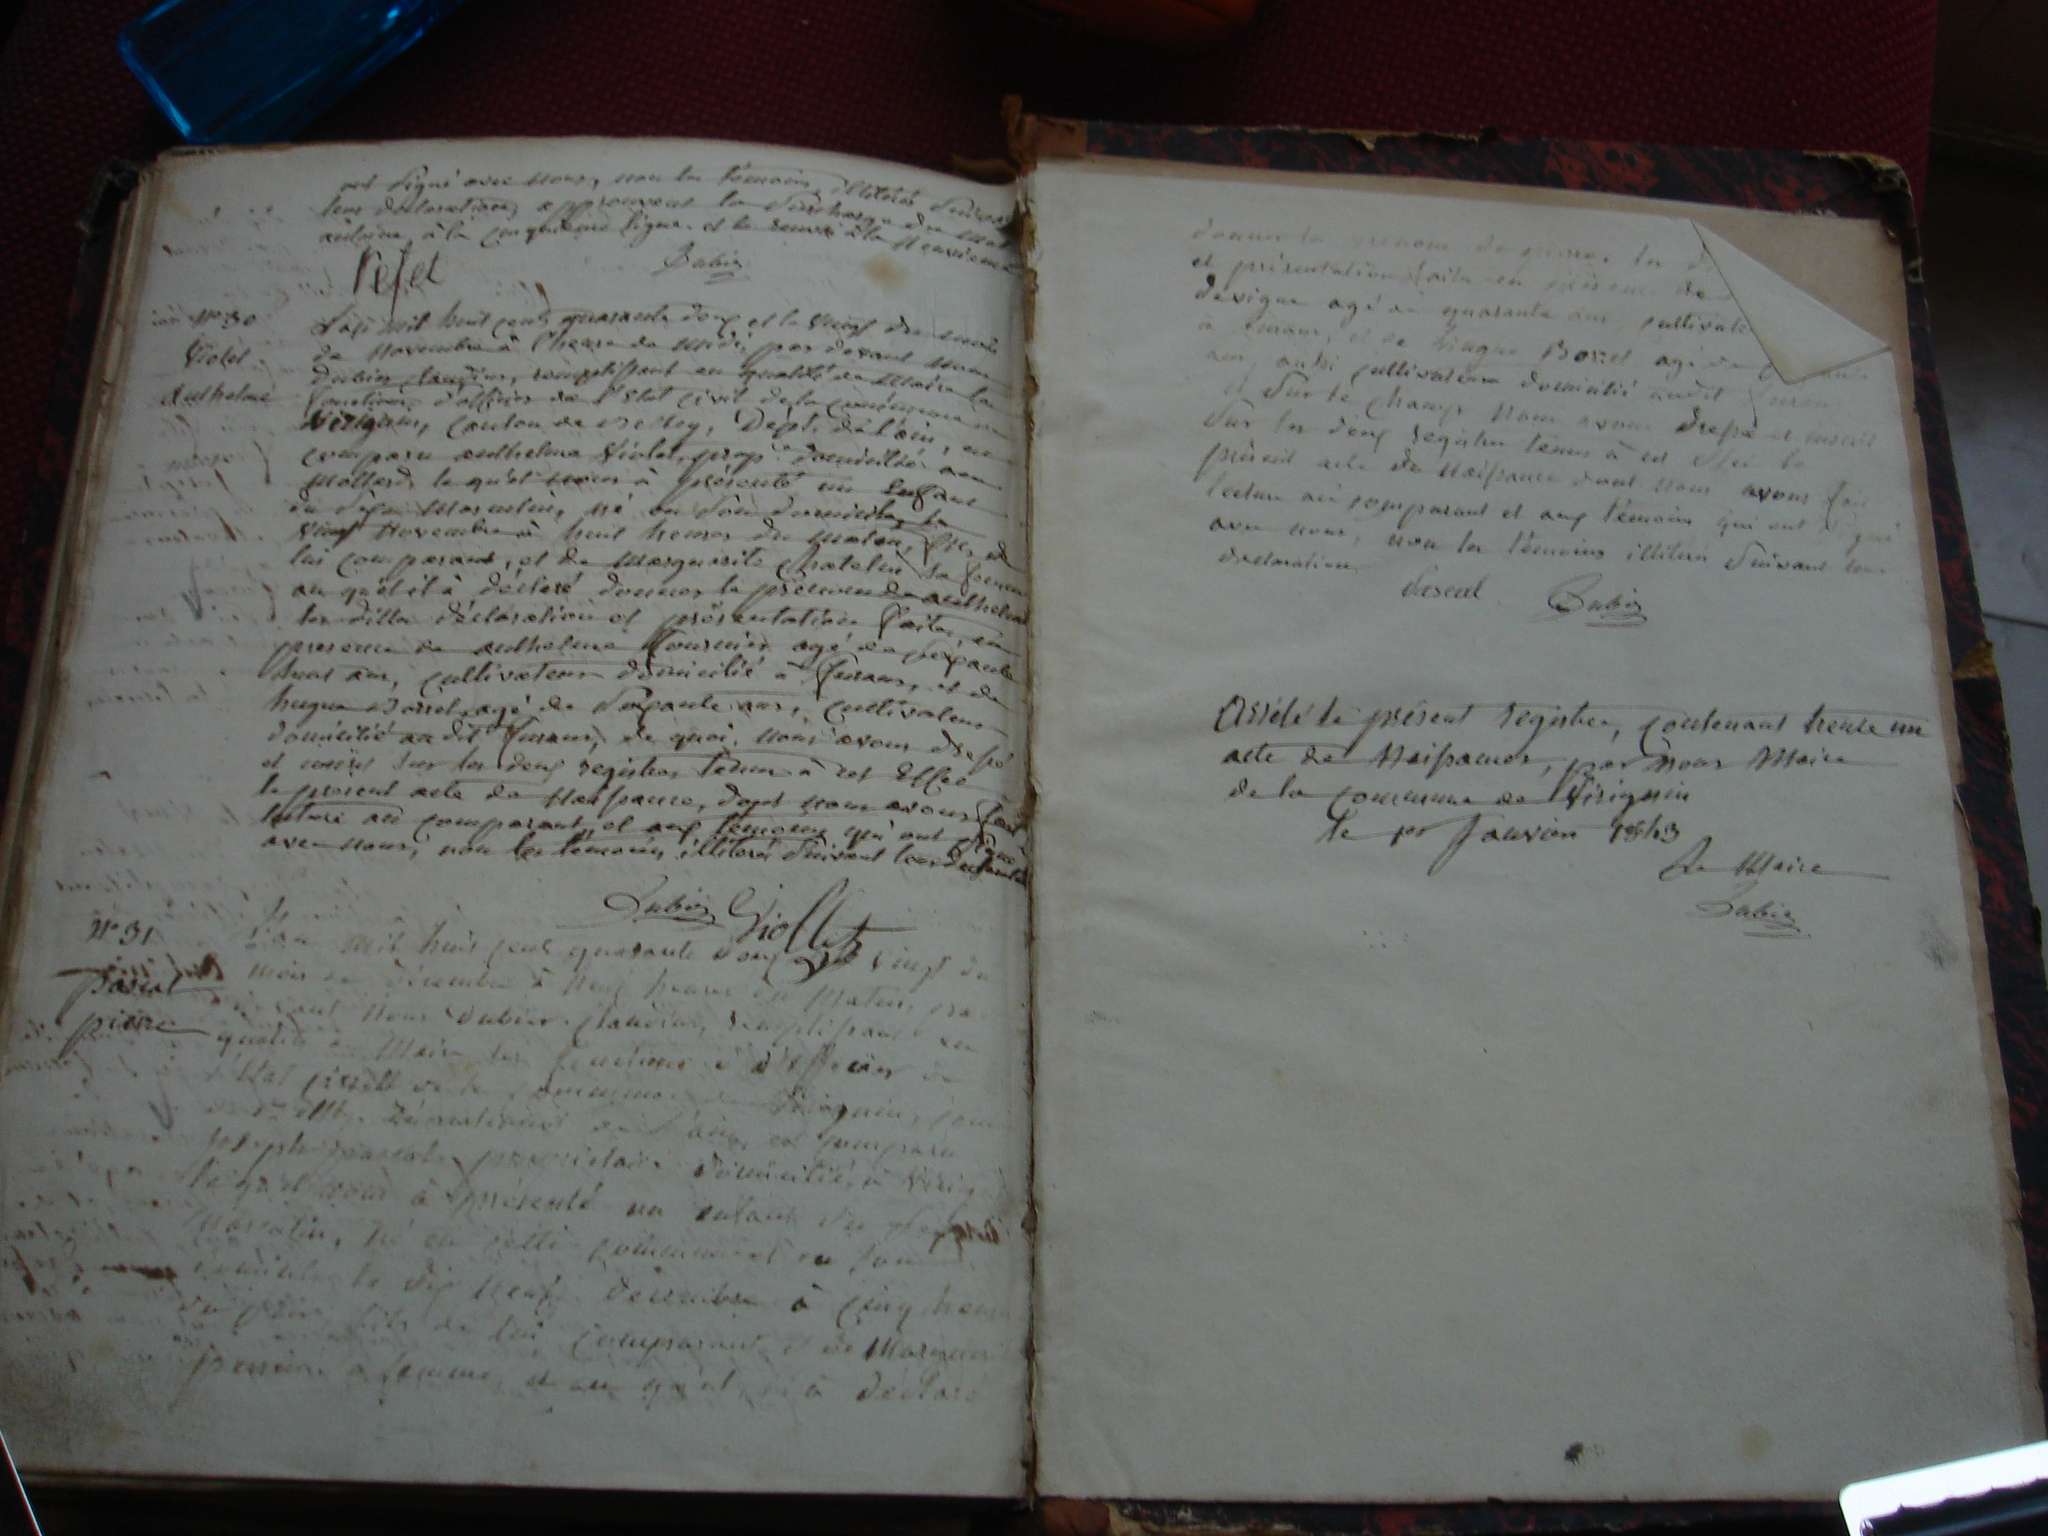 ont signé avec nous, non les témoins illitérés suivant
leur déclaration, approuvant la surcharge du mot
antoine à la cinquième ligne et le renvoi à la neuvième
Dubin
N° 30
Violet
Anthelme
L'an mil huit cent quarante deux et le vingt du mois
de Novembre à l'heure de midi, par devant nous
Dubin Claudin, remplissant en qualité de Maire les
fonctions d'officier de l'Etat civil de la commune de
Virignin, canton de Belley, Dépt. de l'ain, est
comparu anthelme Violet, prop.re domicilié au
mollard, le quel nous à présenté un enfant
du sexe masculin, né en son domicile, le
vingt Novembre à huit heures du matin, fils de
lui comparant, et de Marguerite Chatelin sa femme
au quel il à déclaré donner le prénom de anthelme
les dittes déclaration et présentation faites en
presence de anthelme fournier agé de soixante
huit ans, cultivateur domicilié à furans, et de
hugue Borret, agé de soixante ans, cultivateur
domicilié au dit furans, de quoi, nous avons dressé
et inscrit sur les deux registres tenus à cet effet
le présent acte de Naissance, dont nous avons fait
lecture au comparant, et aux temoins qui ont signé
avec nous, non les temoins illiterés suivant leur
Dubin Viollet
N° 31
Pascal
pierre
L'an mil huit cent quarante deux et le vingt du
mois de décembre à neuf heures du matin, par
devant nous Dubin Claudin, remplissant en
qualité de Maire les fonctions d'officier de
l'Etat civil de la commune de Virignin, canton
de Belley, département de l'ain, est comparu
Joseph pascal, propriétaire domicilié, à Virignin
le quel nous à présenté un enfant du sexe
masculin, né en cette commune et en son
domicile, le dix neuf décembre à cinq heures
fils de lui comparant, et de Marguerite
sa femme, et au quel il à déclaré
donner le prénom de pierre. les
et présentation faite en présence de
devigne agé de quarante ans, cultivateur
à furans, et de hugue Borret agé de
ans, aussi cultivateur domicilié audit furans
et sur le champ nous avons dressé et inscrit
sur les deux registres tenus à cet effet le
présent acte de Naissance dont nous avons fait
lecture au comparant et aux témoins qui ont signé
avec nous, non les témoins illitérés suivant leur
déclaration
Pascal Dubin
Arrêté le présent registre, contenant trente un
acte de Naissances, par nous Maire
de la commune de Virignin
le 1er Janvier 1843
Le Maire
Dubin